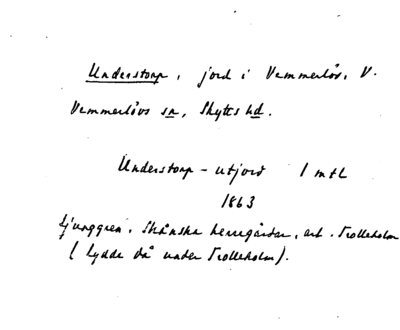 Understorp, jord i Vemmerlöv, V.
Vemmerlövs sn, Skytts hd.
Understorp - utjord 1 mtl
1863
Ljunggren, Skånska herregårdar, art. Trolleholm
(Lydde då under Trolleholm).